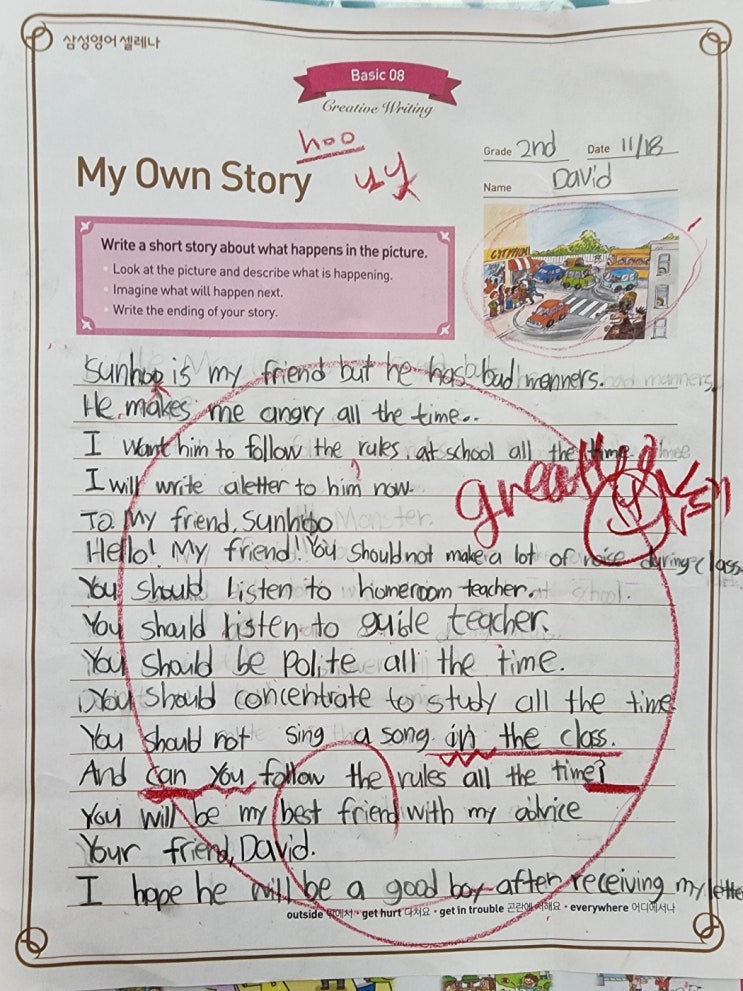 삼성영어 셀레나
Basic 08
Creative Writing
hoo
Grade 2nd Date 11/18
My Own Story
Name David
Write a short story about what happens in the picture.
Look at the picture and describe what is happening.
Imagine what will happen next.
Write the ending of your story.
Sunhoo is my friend but he has bad manners.
He makes me angry all the time..
I want him to follow the rules at school all the time.
I will write a letter to him now.
To. My friend, Sunhoo
Hello! My friend! You should not make a lot of noise during class
You should listen to homeroom teacher.
You should listen to guide teacher.
You should be polite all the time.
You should concentrate to study all the time
You should not sing a song in the class.
And can you follow the rules all the time?
You will be my best friend with my advice
Your friend, David.
I hope he will be a good boy after receiving my letter
outside 밖에서 • get hurt 다쳐요 • get in trouble 곤란에 처해요 • everywhere 어디에서나